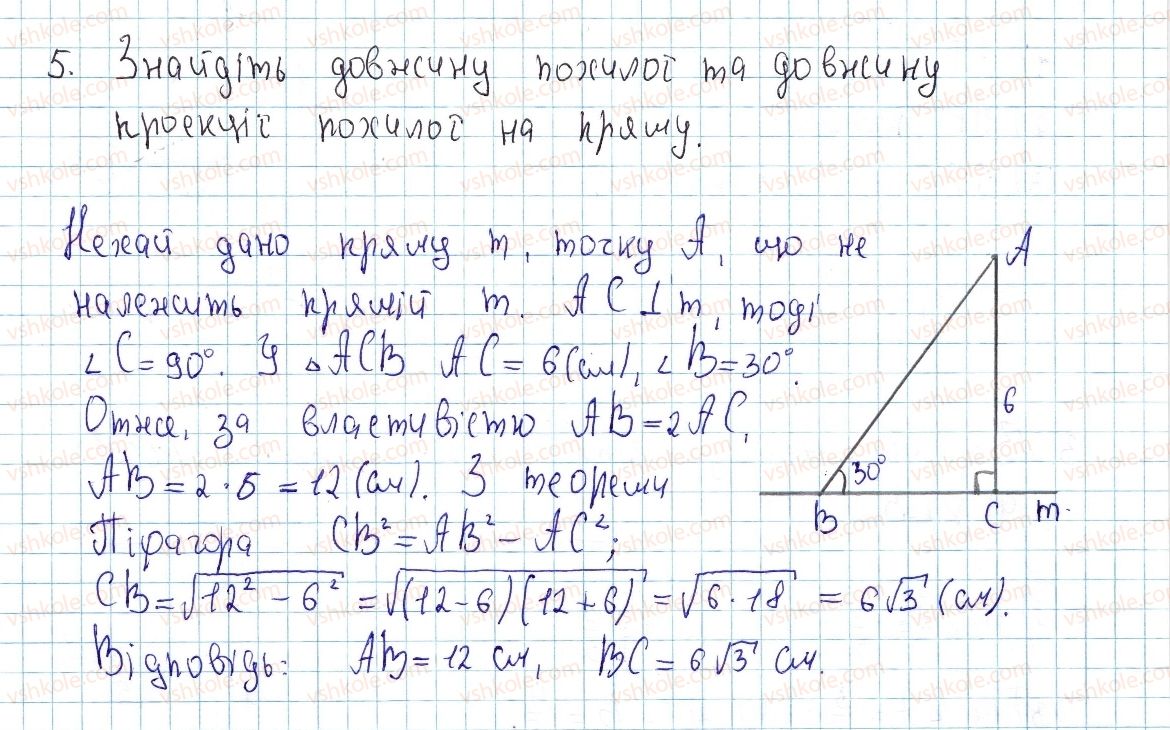 5. Знайдіть довжину похилої та довжину
проекції похилої на пряму.
Нехай дано пряму m, точку A, що не
належить прямій m. AC⊥m, тоді
∠C=90°. У △ACB AC=6(см), ∠B=30°.
Отже, за властивістю AB=2AC,
AB=2·5=12(см). З теореми
Піфагора CB²=AB²−AC²;
CB=√(12²−6²)=√((12−6)(12+6))=√(6·18)=6√3(см).
Відповідь: AB=12 см, BC=6√3 см.
A
6
30°
B C m.
vshkole.com